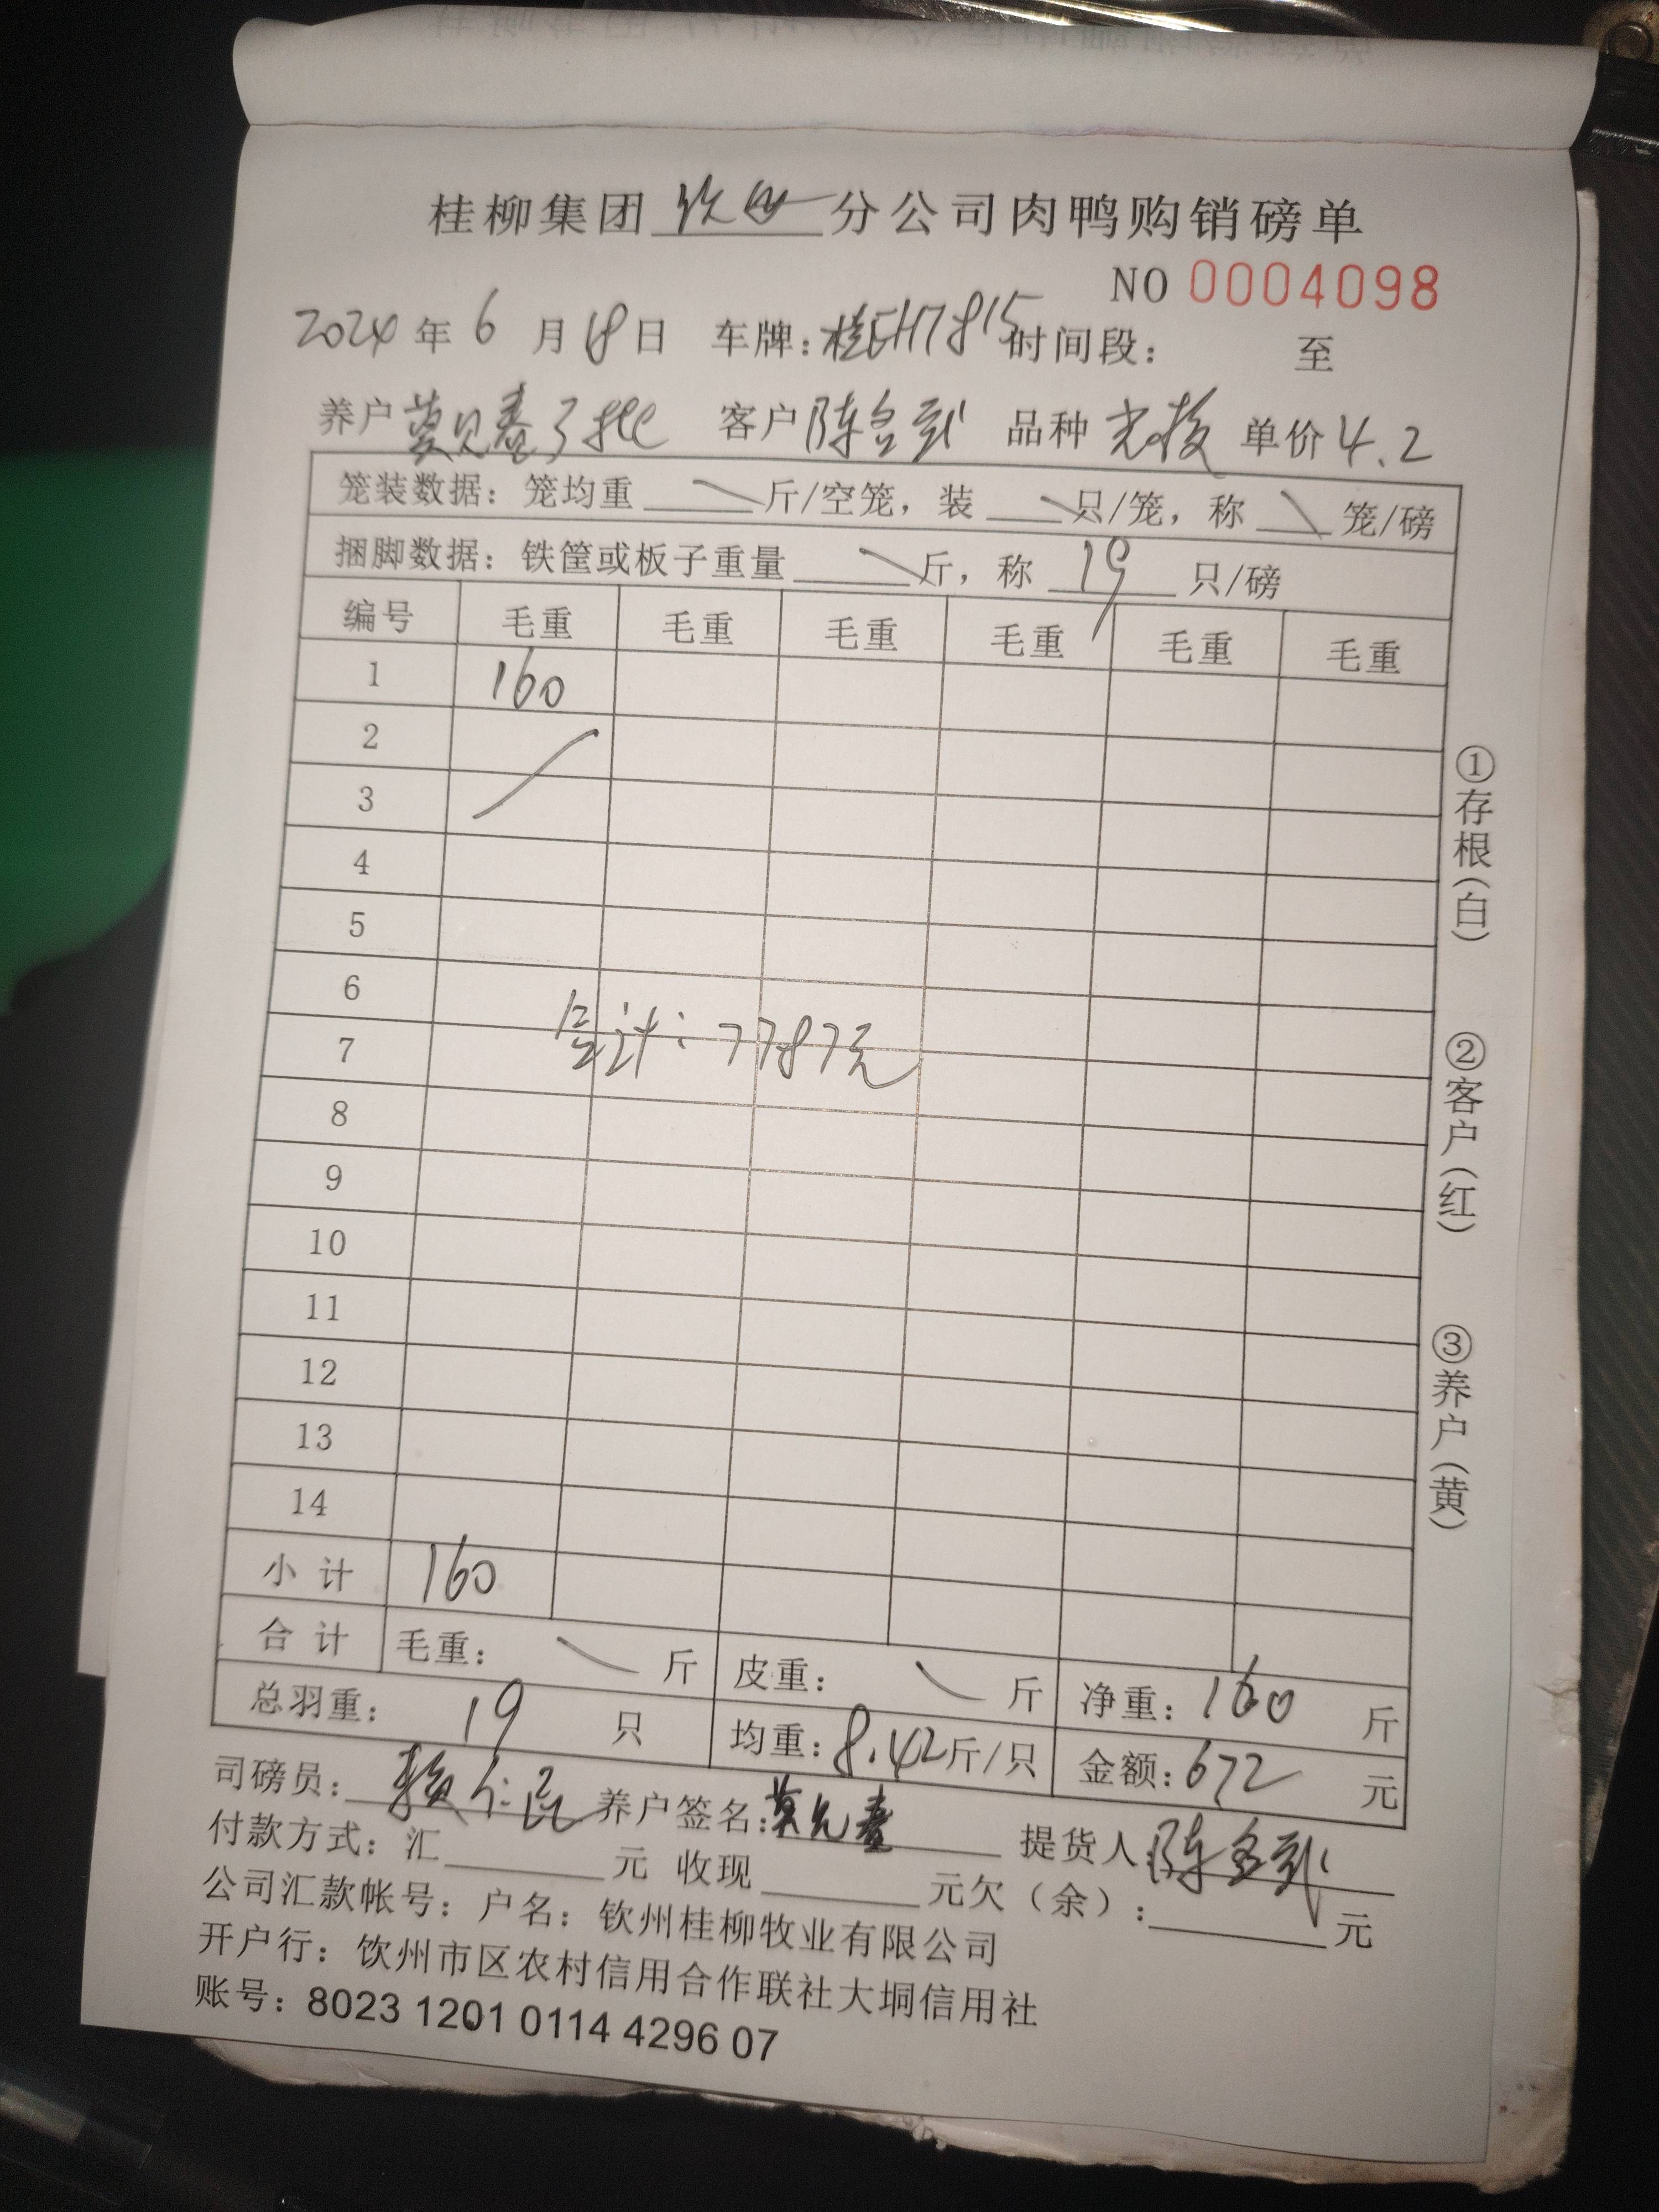 桂柳集团钦州分公司肉鸭购销磅单
NO 0004098
2024年6月18日 车牌:桂EH7815时间段: 至
养户 3批 客户陈 品种 单价4.2
笼装数据:笼均重 斤/空笼,装 只/笼,称 笼/磅
捆脚数据:铁筐或板子重量 斤,称 19 只/磅
编号 毛重 毛重 毛重 毛重 毛重 毛重
1 160
2
3
4
5
6
合计:7787元
7
8
9
10
11
12
13
14
小计 160
合计 毛重: 斤 皮重: 斤 净重:160 斤
总羽重: 19 只 均重:8.42斤/只 金额:672 元
司磅员: 养户签名: 提货人陈
付款方式:汇 元 收现 元欠(余): 元
公司汇款帐号:户名:钦州桂柳牧业有限公司
开户行:饮州市区农村信用合作联社大垌信用社
账号:8023 1201 0114 4296 07
①存根(白)
②客户(红)
③养户(黄)